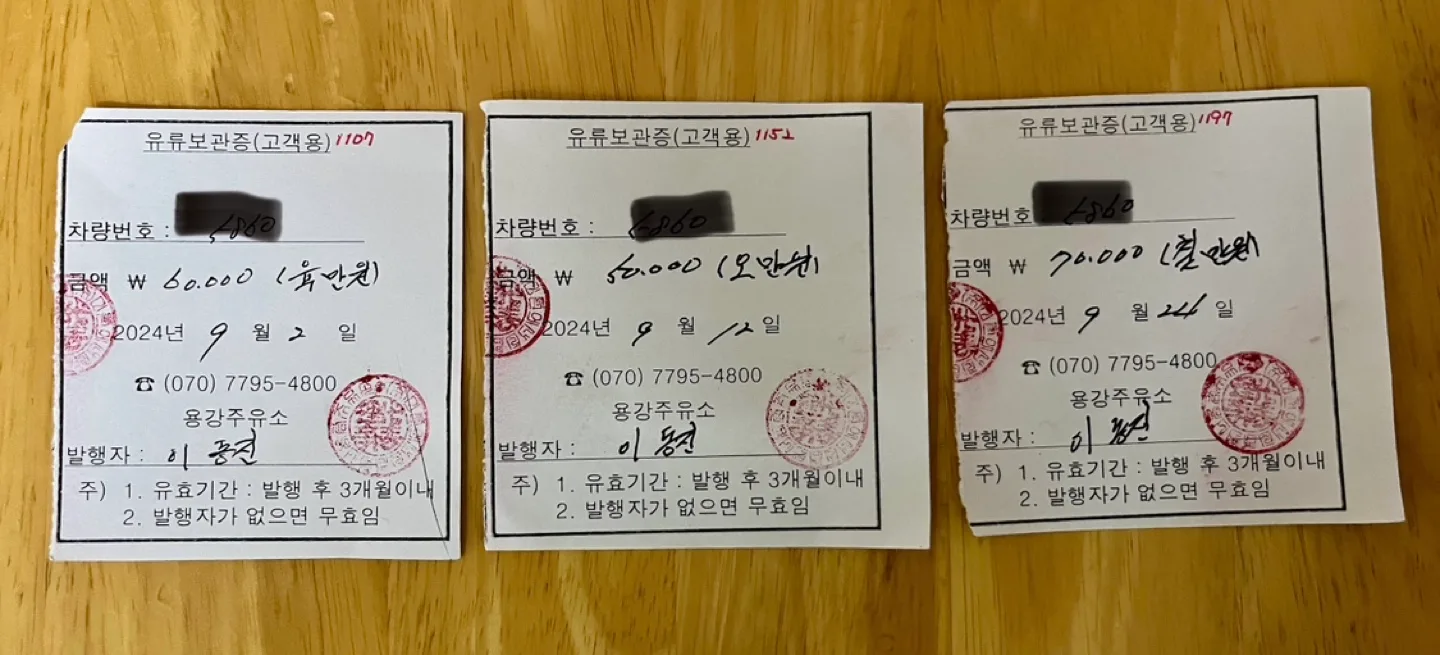 유류보관증(고객용) 1107
차량번호 :
금액 ₩ 60.000 (육만원)
2024년 9 월 2 일
☎ (070) 7795-4800
용강주유소
발행자 : 이동진
주) 1. 유효기간 : 발행 후 3개월이내
2. 발행자가 없으면 무효임
유류보관증(고객용) 1152
차량번호 :
금액 ₩ 50.000 (오만원)
2024년 9 월 12 일
☎ (070) 7795-4800
용강주유소
발행자 : 이동진
주) 1. 유효기간 : 발행 후 3개월이내
2. 발행자가 없으면 무효임
유류보관증(고객용) 1197
차량번호
금액 ₩ 70.000 (칠만원)
2024년 9 월 24 일
☎ (070) 7795-4800
용강주유소
발행자 : 이동진
주) 1. 유효기간 : 발행 후 3개월이내
2. 발행자가 없으면 무효임